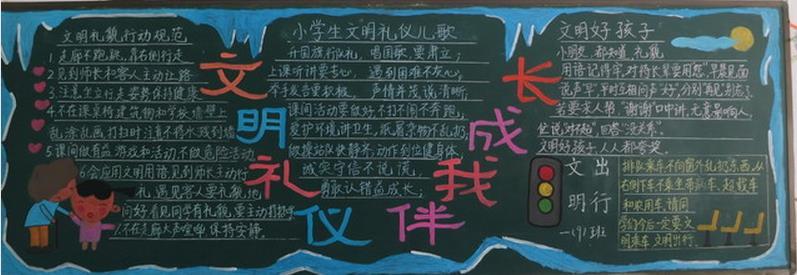 文明礼貌行动规范
1.走廊不跑跳,靠右侧行走
2.见到师长和客人主动让路
3.注意坐立行走姿势保持健康
4.不在课桌椅建筑物和学校墙壁上
乱涂乱画打扫时注意不将水溅到墙
5.课间做有益游戏和活动,不做危险活动
6会应用文明用语,见到师长主动行
礼,遇见客人要礼貌地
问好看见同学有礼貌,要主动打招呼
7.不在走廊大声喧哗保持安静。
文明礼仪伴我成长
小学生文明礼仪儿歌
升国旗行队礼,唱国歌,要肃立;
上课听讲要专心,遇到困难不灰心;
举手发言要积极,声情并茂说清晰;
课间活动要做好,不打不闹不奔跑;
爱护环境讲卫生,纸屑杂物不乱扔;
做操站队快静齐,动作到位健身体
诚实守信不说谎,
勇敢认错益成长;
文明好孩子
小朋友,都知道,礼貌
用语记得牢,对待长辈要用您,早晨见面
说声早,平时互相问声好,分别再见别忘了
若要求人帮,谢谢口中讲,无意影响人,
快说"对不起"回答"没关系"。
文明好孩子人人都夸奖
文明出行
一(9)班
排队乘车不向窗外乱扔东西,从
右侧下车不乘坐带病车、超载车
和农用车,请同
学们今后一定要文
明乘车 文明出行